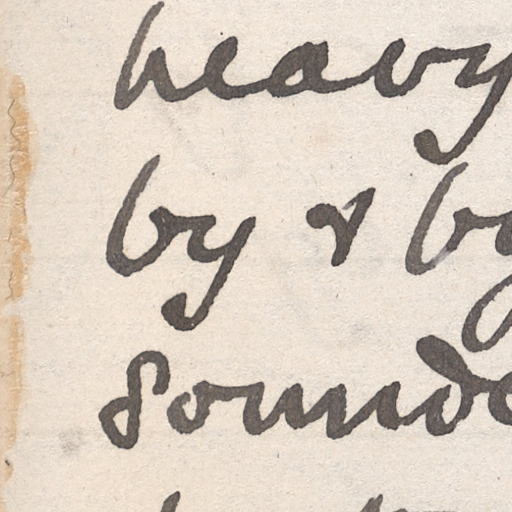 heavy
by & by
sounde